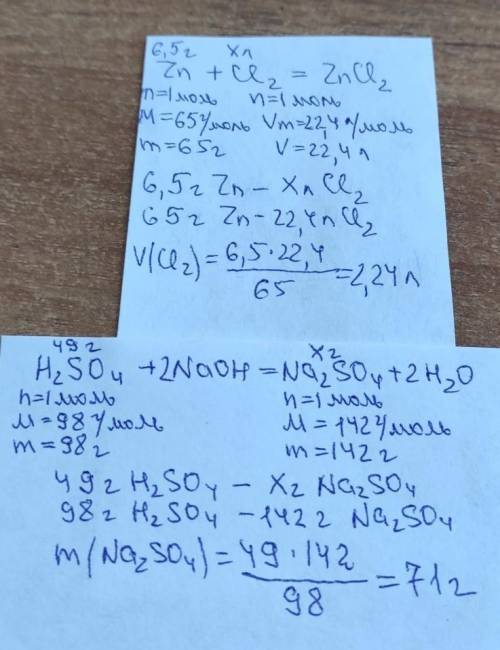 6,5г хл
Zn + Cl₂ = ZnCl₂
n=1моль n=1моль
M=65г/моль Vm=22,4л/моль
m=65г V=22,4л
6,5г Zn – XлCl₂
65г Zn – 22,4лCl₂
V(Cl₂) = 6,5·22,4 = 2,24л
65
49г Xг
H₂SO₄ + 2NaOH = Na₂SO₄ + 2H₂O
n=1моль n=1моль
M=98г/моль M=142г/моль
m=98г m=142г
49г H₂SO₄ – Xг Na₂SO₄
98г H₂SO₄ – 142г Na₂SO₄
m(Na₂SO₄) = 49·142 = 71г
98